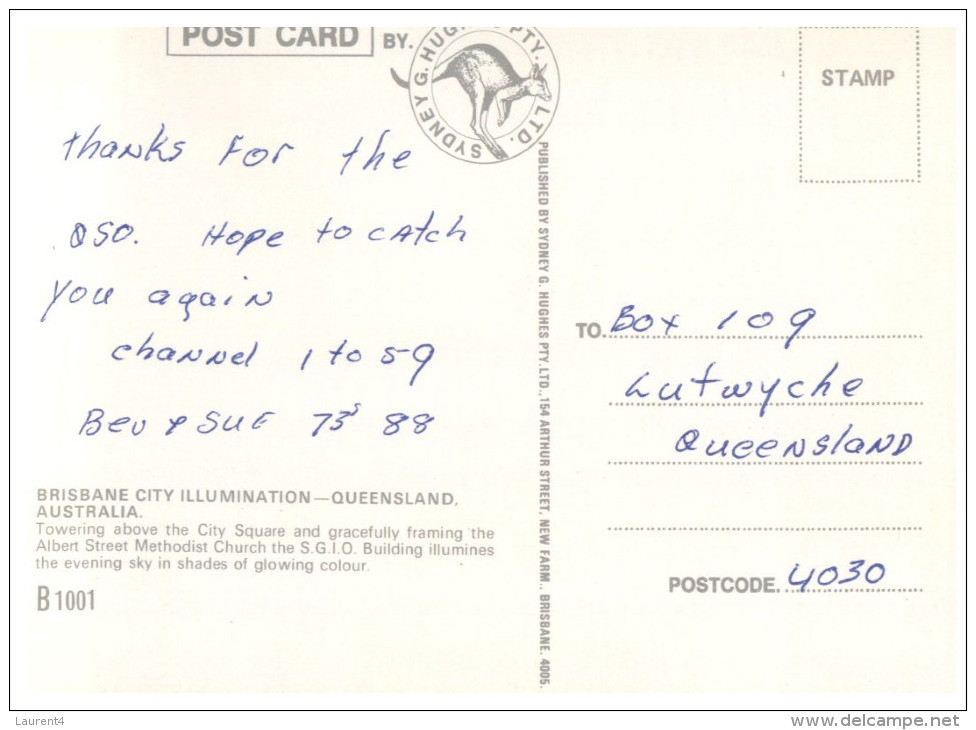 POST CARD BY.
SYDNEY G. HUGHES PTY. LTD.
STAMP
thanks For the
QSO. Hope to catch
you again
channel 1 to 59
Bev & SUE 73's 88
BRISBANE CITY ILLUMINATION—QUEENSLAND,
AUSTRALIA.
Towering above the City Square and gracefully framing the
Albert Street Methodist Church the S.G.I.O. Building illumines
the evening sky in shades of glowing colour.
B 1001
PUBLISHED BY SYDNEY G. HUGHES PTY. LTD., 154 ARTHUR STREET, NEW FARM., BRISBANE. 4005.
TO. Box 109
Lutwyche
Queensland
POSTCODE. 4030
Laurent4
www.delcampe.net